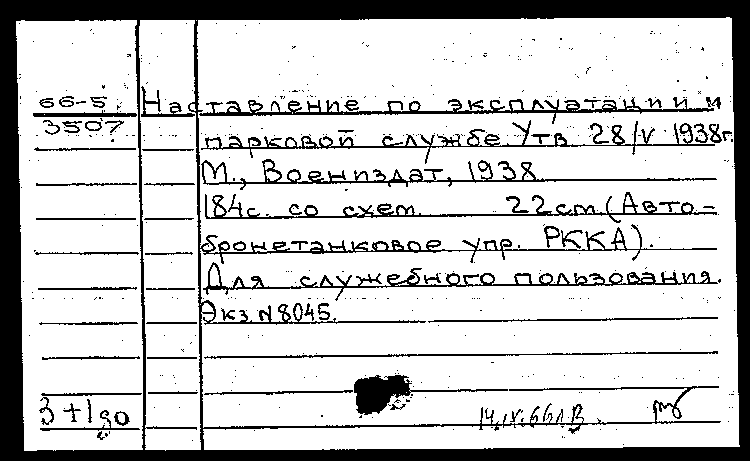 66-5
3507
Наставление по эксплуатации и
парковой службе. Утв 28/V 1938г.
М., Воениздат, 1938
184с. со схем. 22см. (Авто-
бронетанковое упр. РККА).
Для служебного пользования.
Экз N8045.
3+1до
14.IV.66